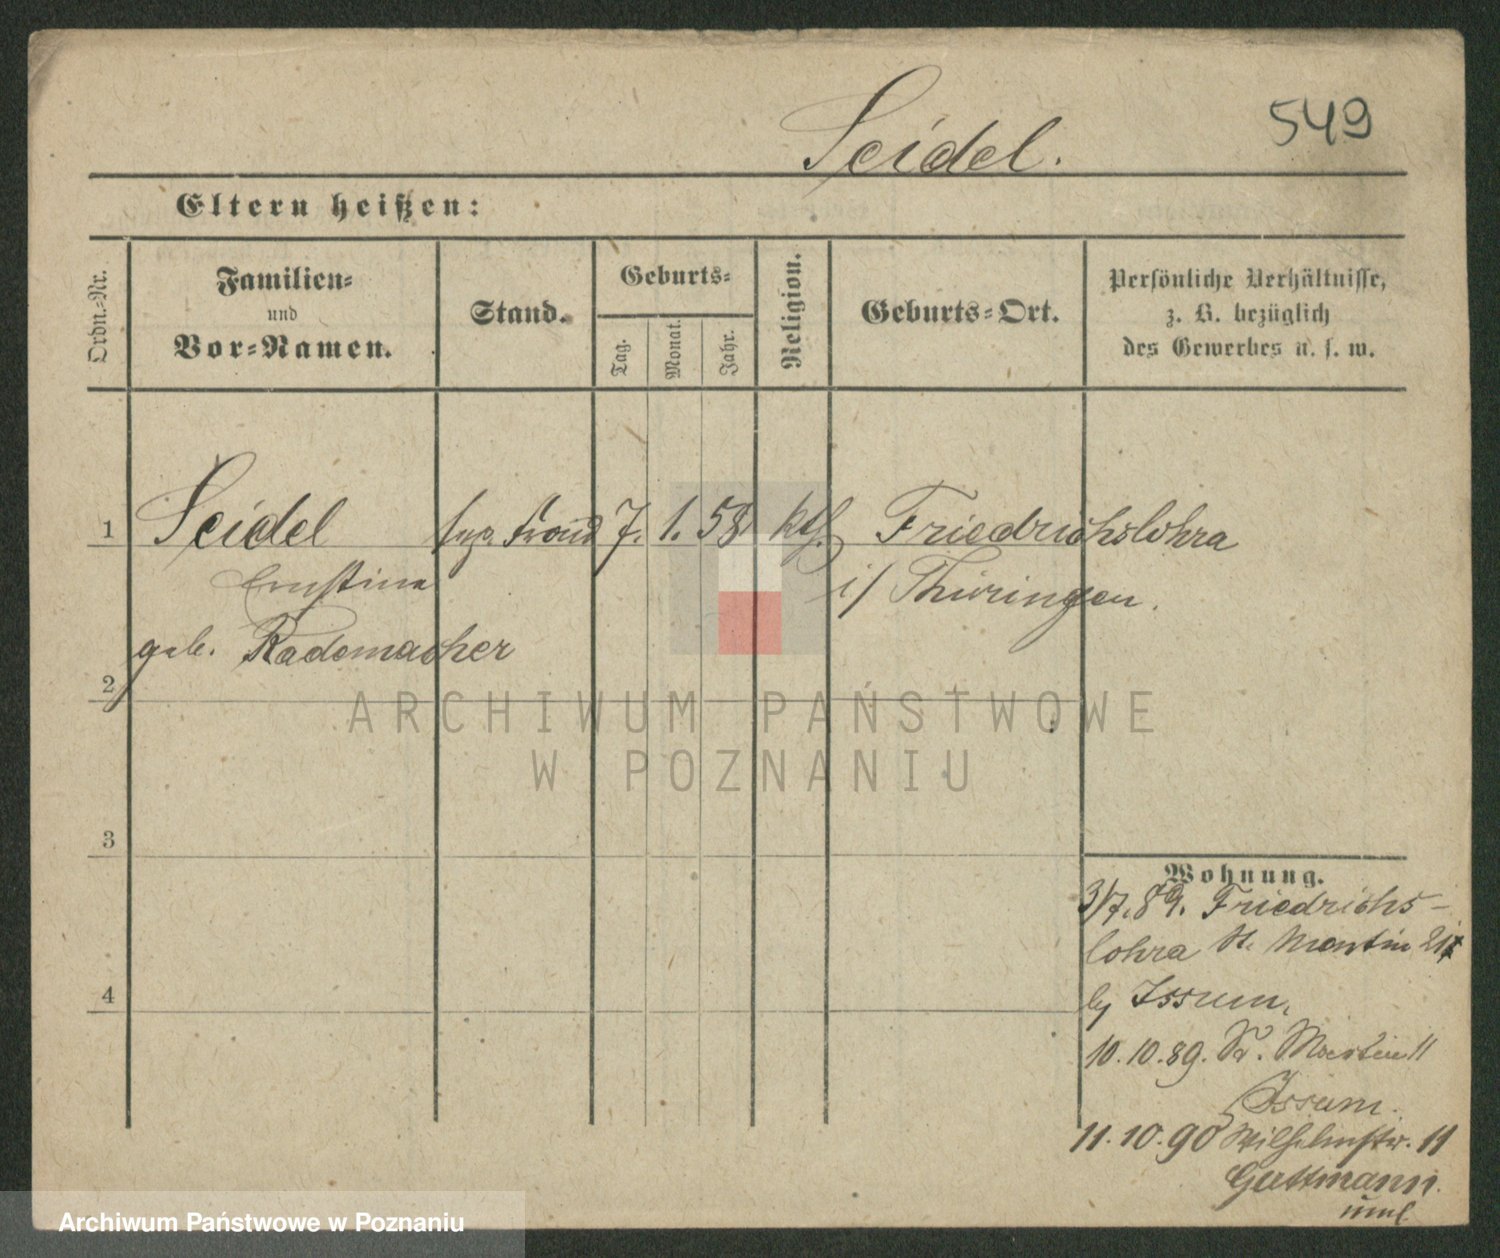 549
Seidel.
Eltern heißen:
Ordn.-Nr.
Familien-
und
Vor-Namen.
Stand.
Geburts-
Tag.
Monat.
Jahr.
Religion.
Geburts-Ort.
Persönliche Verhältnisse,
z. B. bezüglich
des Gewerbes u. s. w.
1 Seidel 7. 1. 58 kth. Friedrichslohra
Ernstine i/ Thüringen.
geb. Rademacher
2
3
4
Wohnung.
3/7.89. Friedrichs-
lohra St. Martin
by Issum,
10.10.89. St. Martin 11
Issum.
11.10.90 Wilhelmstr. 11
Guttmann
ARCHIWUM PAŃSTWOWE
W POZNANIU
Archiwum Państwowe w Poznaniu